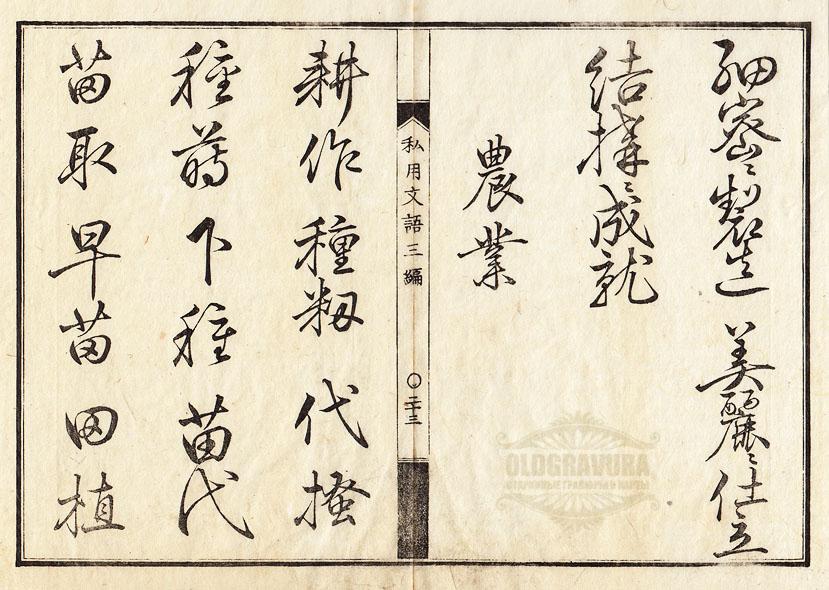 細密ニ製造 美麗ニ仕立
結構ニ成就
農業
私用文語三編
〇二十三
耕作 種籾 代掻
種蒔 下種 苗代
苗取 早苗 田植
OLDGRAVURA
СТАРИННЫЕ ГРАВЮРЫ & КАРТЫ